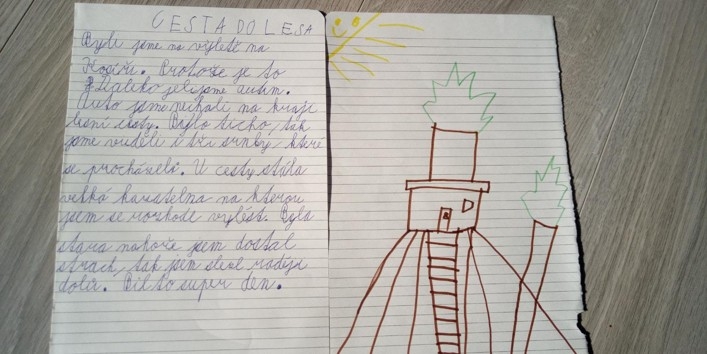 CESTA DO LESA
Byli jsme na výletě na
Kosíři. Protože je to
daleko jeli jsme autem.
Auto jsme nechali na kraji
lesní cesty. Bylo ticho, tak
jsme viděli i tři srnky, které
se procházeli. U cesty stála
velká kazatelna na kterou
jsem se rozhodl vylést. Byla
stará nahoře jsem dostal
strach, tak jsem slezl raději
dolů. Bil to super den.